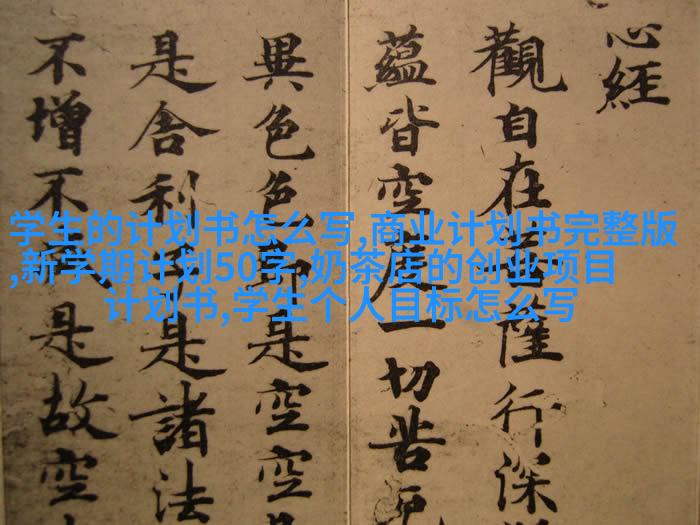 心經
觀自在菩薩行深
蘊皆空度一切苦厄
異色色即是空空
是舍利子是諸法
不增不減是故空
学生的计划书怎么写,商业计划书完整版
,新学期计划50字,奶茶店的创业项目
计划书,学生个人目标怎么写